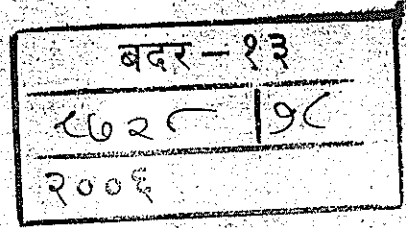 बदर - १३
८७२८ | ७८
२००६